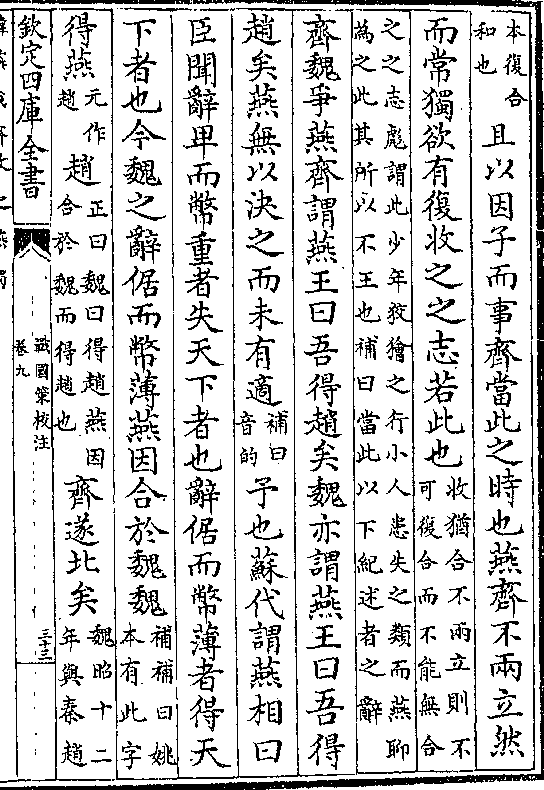 本復合
和也
且以因子而事齊當此之時也燕齊不兩立然
而常獨欲有復收之之志若此也
收猶合不兩立則不
可復合而不能無合
之之志彪謂此少年狡獪之行小人患失之類而燕聊
為之此其所以不王也補曰當此以下紀述者之辭
齊魏爭燕齊謂燕王曰吾得趙矣魏亦謂燕王曰吾得
趙矣燕無以決之而未有適
補曰
音的
予也蘇代謂燕相曰
臣聞辭卑而幣重者失天下者也辭倨而幣薄者得天
下者也今魏之辭倨而幣薄燕因合於魏魏
補補曰姚
本有此字
得燕
元作
趙
趙
正曰魏曰得趙燕因
合於魏而得趙也
齊遂北矣
魏昭十二
年與秦趙
欽定四庫全書
戰國策校注
卷九
三十三